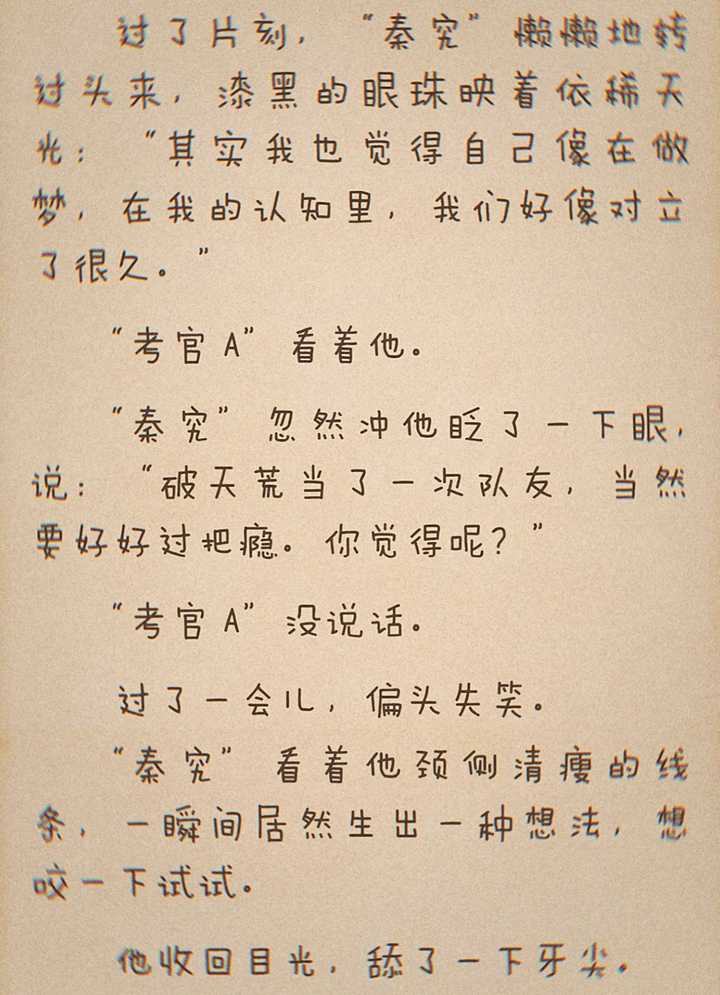 过了片刻，“秦究”懒懒地转
过头来，漆黑的眼珠映着依稀天
光：“其实我也觉得自己像在做
梦，在我的认知里，我们好像对立
了很久。”
“考官A”看着他。
“秦究”忽然冲他眨了一下眼，
说：“破天荒当了一次队友，当然
要好好过把瘾。你觉得呢？”
“考官A”没说话。
过了一会儿，偏头失笑。
“秦究”看着他颈侧清瘦的线
条，一瞬间居然生出一种想法，想
咬一下试试。
他收回目光，舔了一下牙尖。